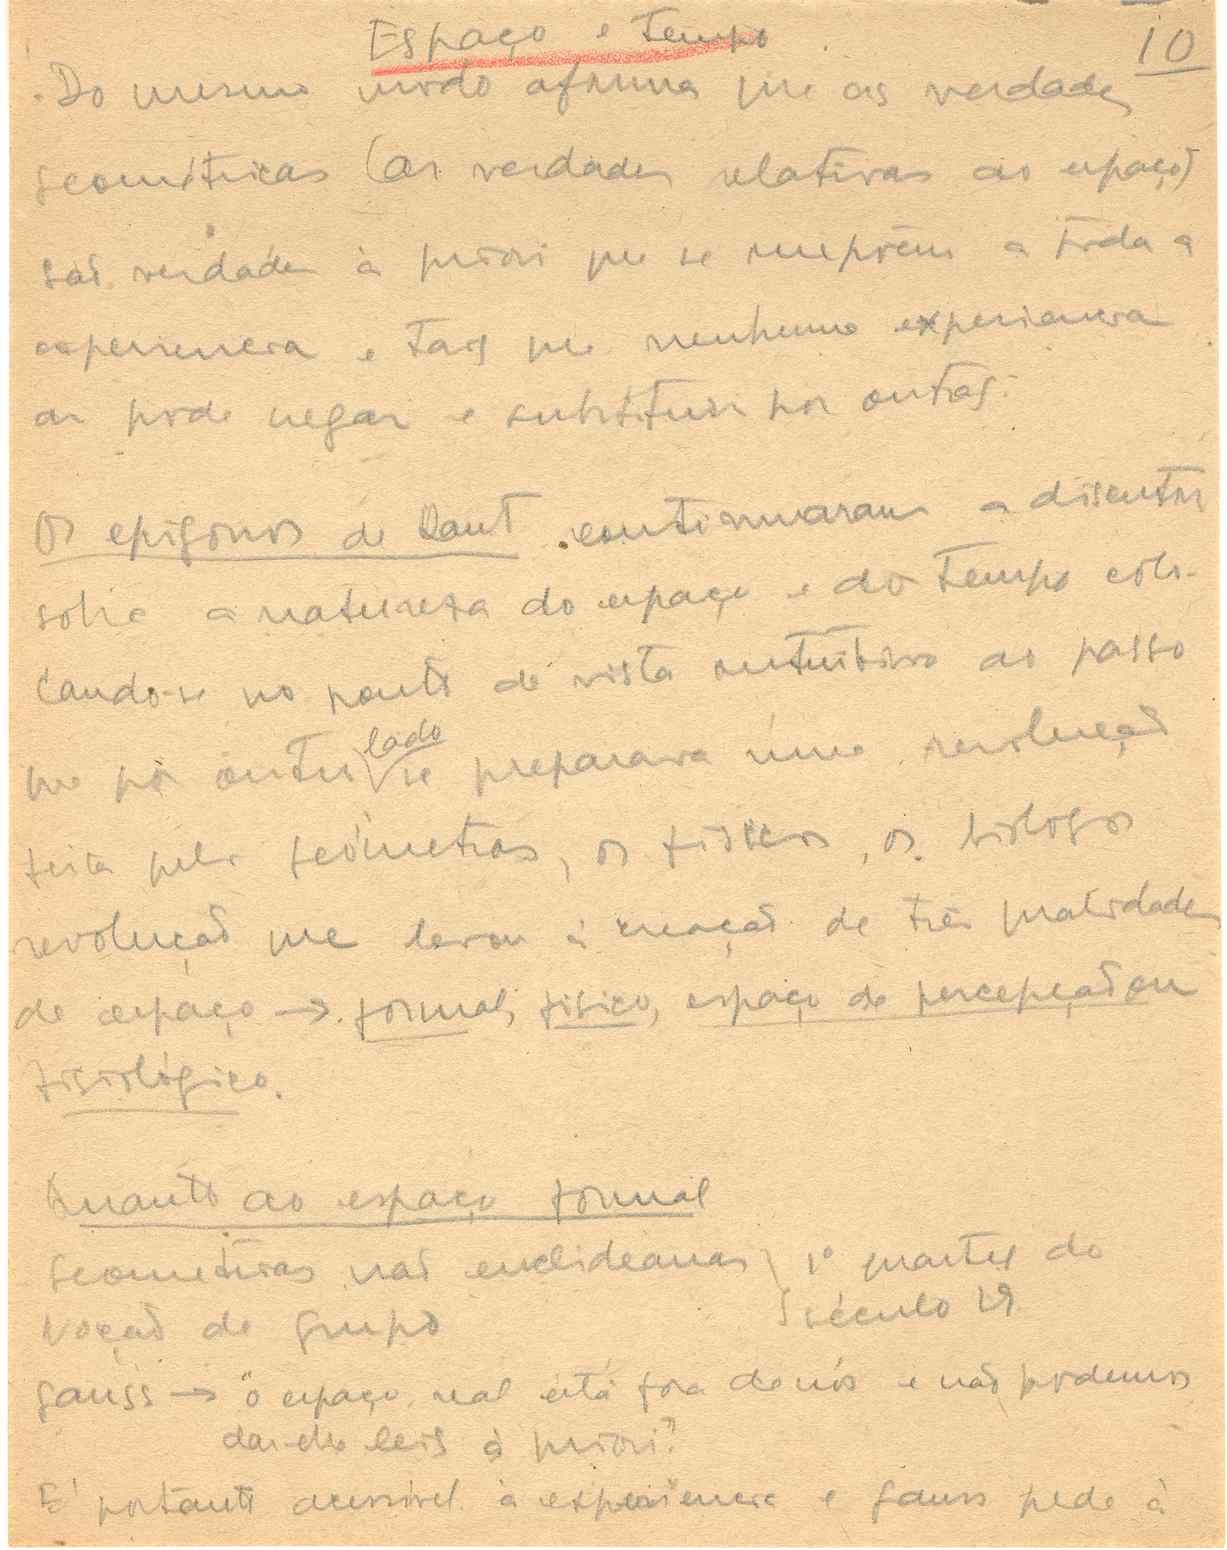 Espaço e Tempo
10
Do mesmo modo afirma que as verdades
geométricas (as verdades relativas ao espaço)
são verdades à priori que se impõem a toda a
experiencia e tais que nenhuma experiencia
as pode negar e substituir por outras.
Os epigonos de Kant continuaram a discutir
sobre a natureza do espaço e do tempo colo-
cando-se no ponto de vista intuitivo ao passo
que por outro lado se preparava uma revolução
feita pelos geómetras, os fisicos, os biologos
revolução que levou à creação de três qualidades
de espaço → formal, fisico, espaço de percepção ou
fisiológico.
Quanto ao espaço formal
Geometrias não euclideanas } 1º quartel do
Noção de grupo } século 19
Gauss → "o espaço real está fora de nós e não podemos
dar-lhe leis à priori."
É portanto acessivel à experiencia e Gauss pede à